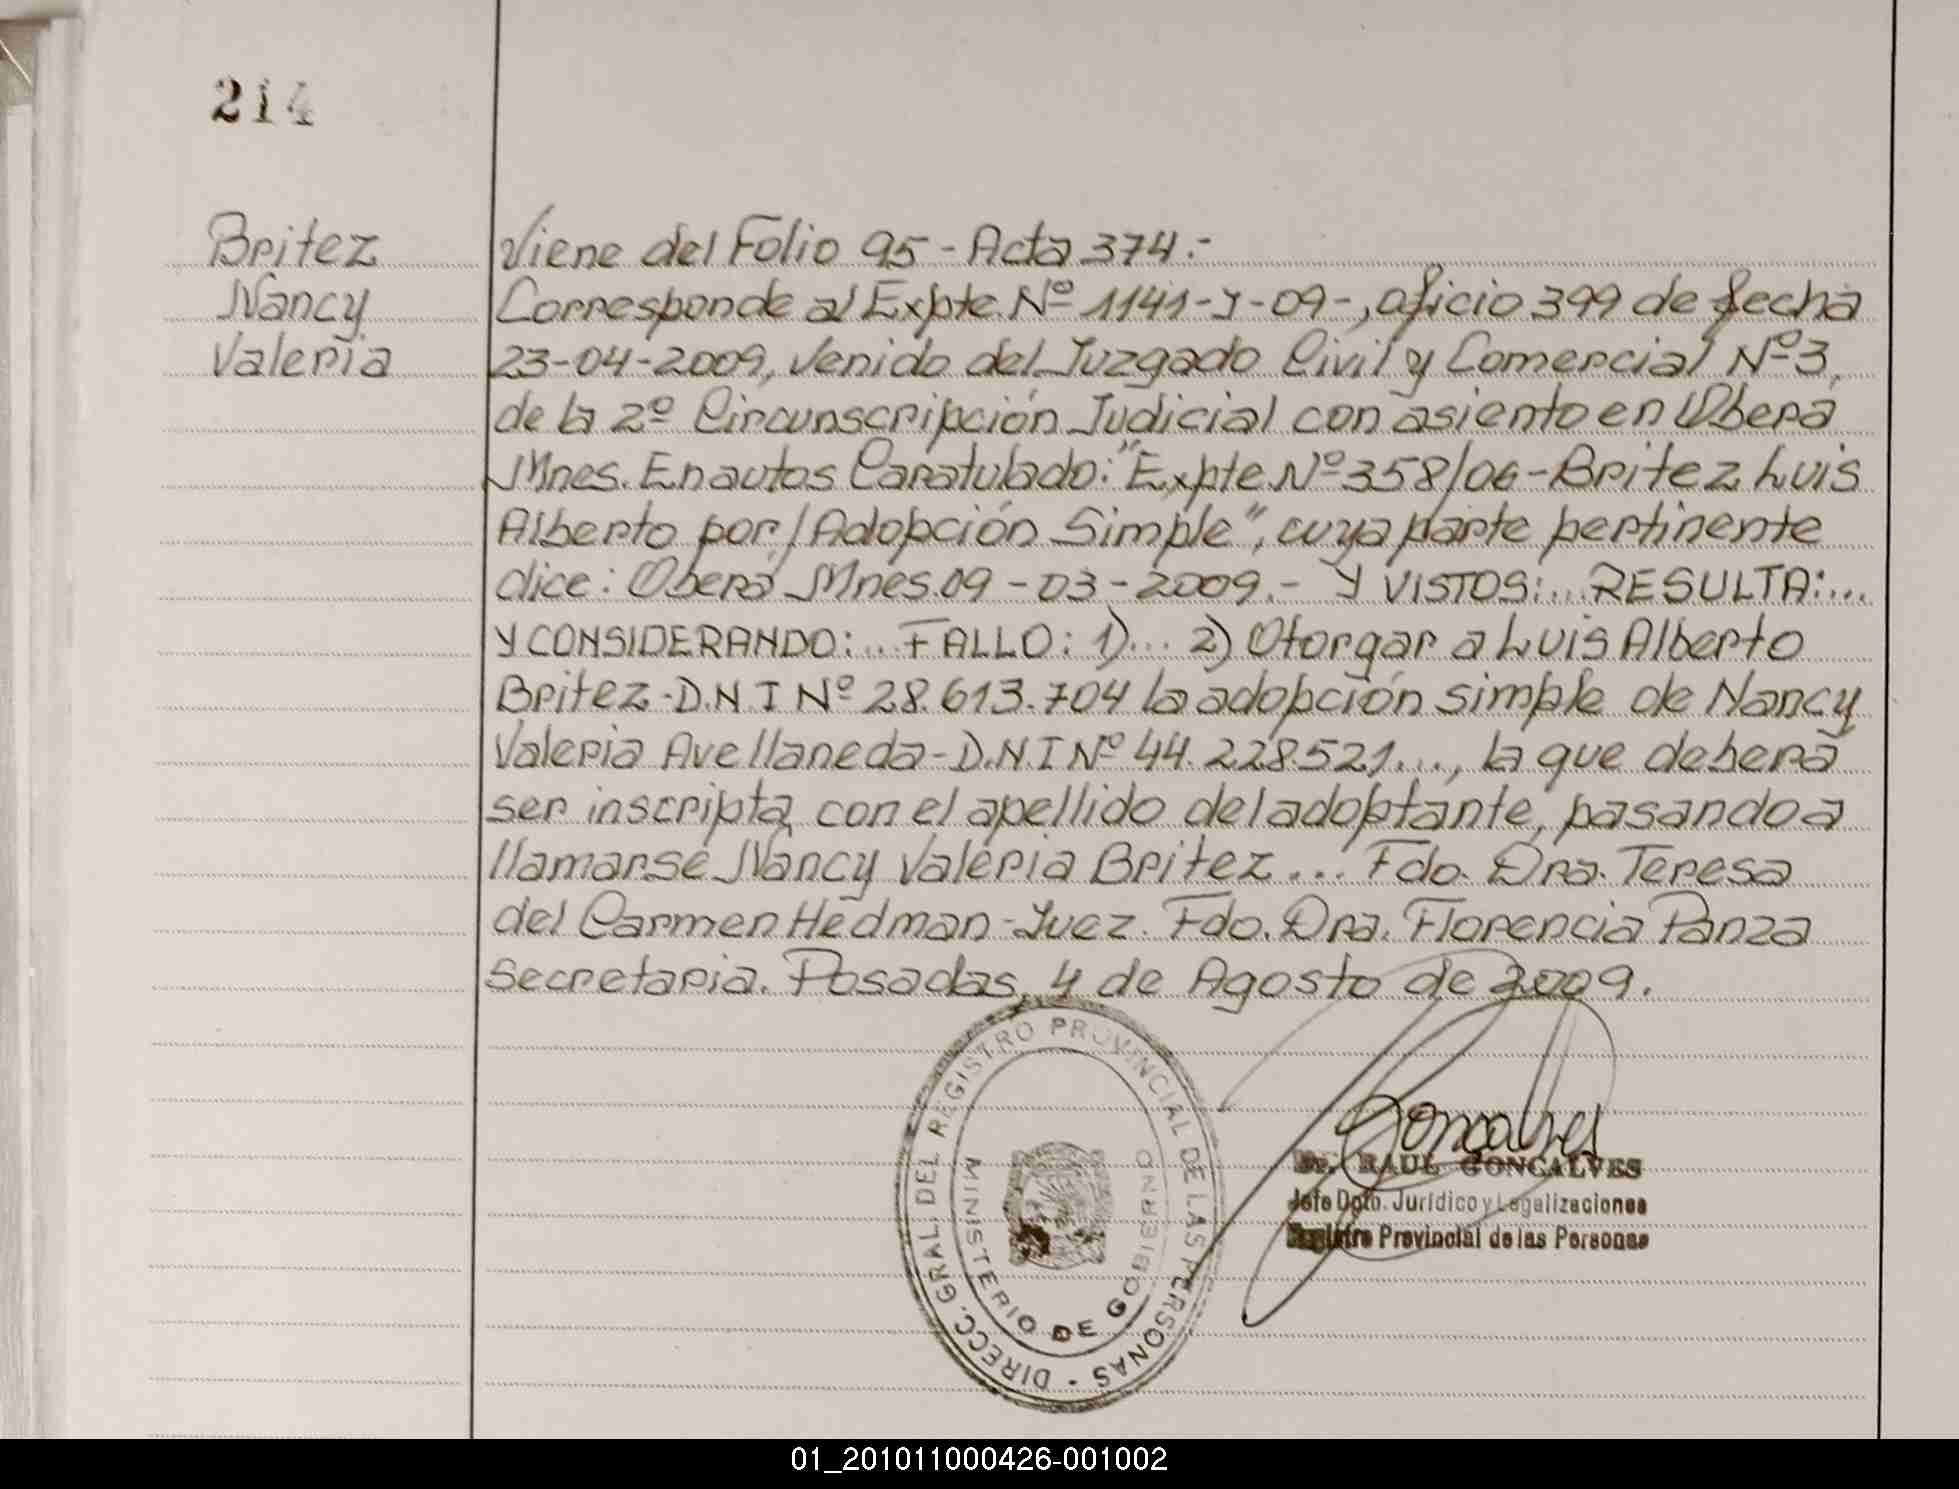 214
Britez
Nancy
Valeria
Viene del Folio 95 - Acta 374.-
Corresponde al Expte. Nº 1141-Y-09-, oficio 399 de fecha
23-04-2009, venido del Juzgado Civil y Comercial Nº 3,
de la 2º Circunscripción Judicial con asiento en Oberá
Mnes. En autos Caratulado: "Expte Nº 358/06 - Britez Luis
Alberto por/ Adopción Simple", cuya parte pertinente
dice: Oberá Mnes. 09 - 03 - 2009.- Y VISTOS:... RESULTA:...
Y CONSIDERANDO:... FALLO: 1)... 2) Otorgar a Luis Alberto
Britez - D.N.I Nº 28.613.704 la adopción simple de Nancy
Valeria Avellaneda - D.N.I Nº 44.228.521..., la que deberá
ser inscripta con el apellido del adoptante, pasando a
llamarse Nancy Valeria Britez... Fdo. Dra. Teresa
del Carmen Hedman - Juez. Fdo. Dra. Florencia Panza
Secretaria. Posadas, 4 de Agosto de 2009.
DIRECC. GRAL. DEL REGISTRO PROVINCIAL DE LAS PERSONAS -
MINISTERIO DE GOBIERNO
Goncalves
Dr. RAUL GONCALVES
Jefe Dpto. Jurídico y Legalizaciones
Registro Provincial de las Personas
01_201011000426-001002